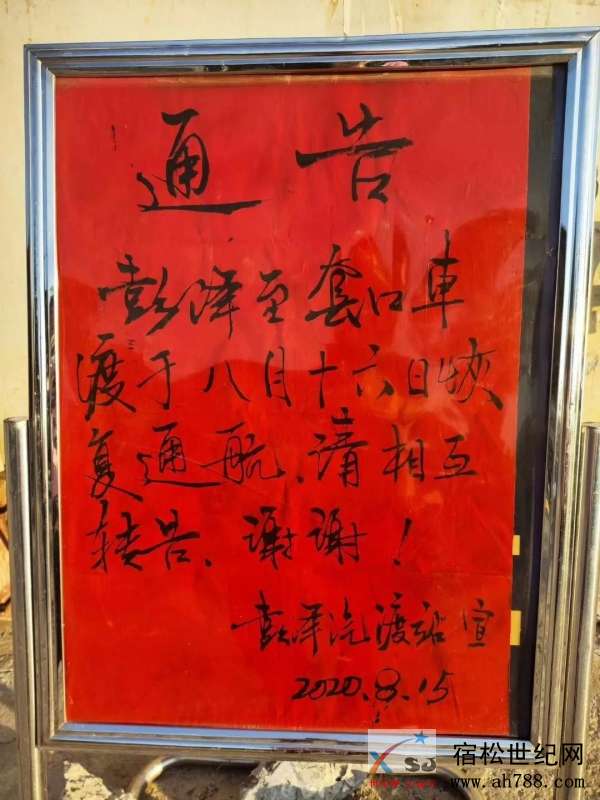 通告
彭泽至套口車
渡于八月十六日恢
复通航、请相互
转告、谢谢！
彭泽汽渡站宣
2020.8.15
XSJ
宿松世纪网
www.ah788.com